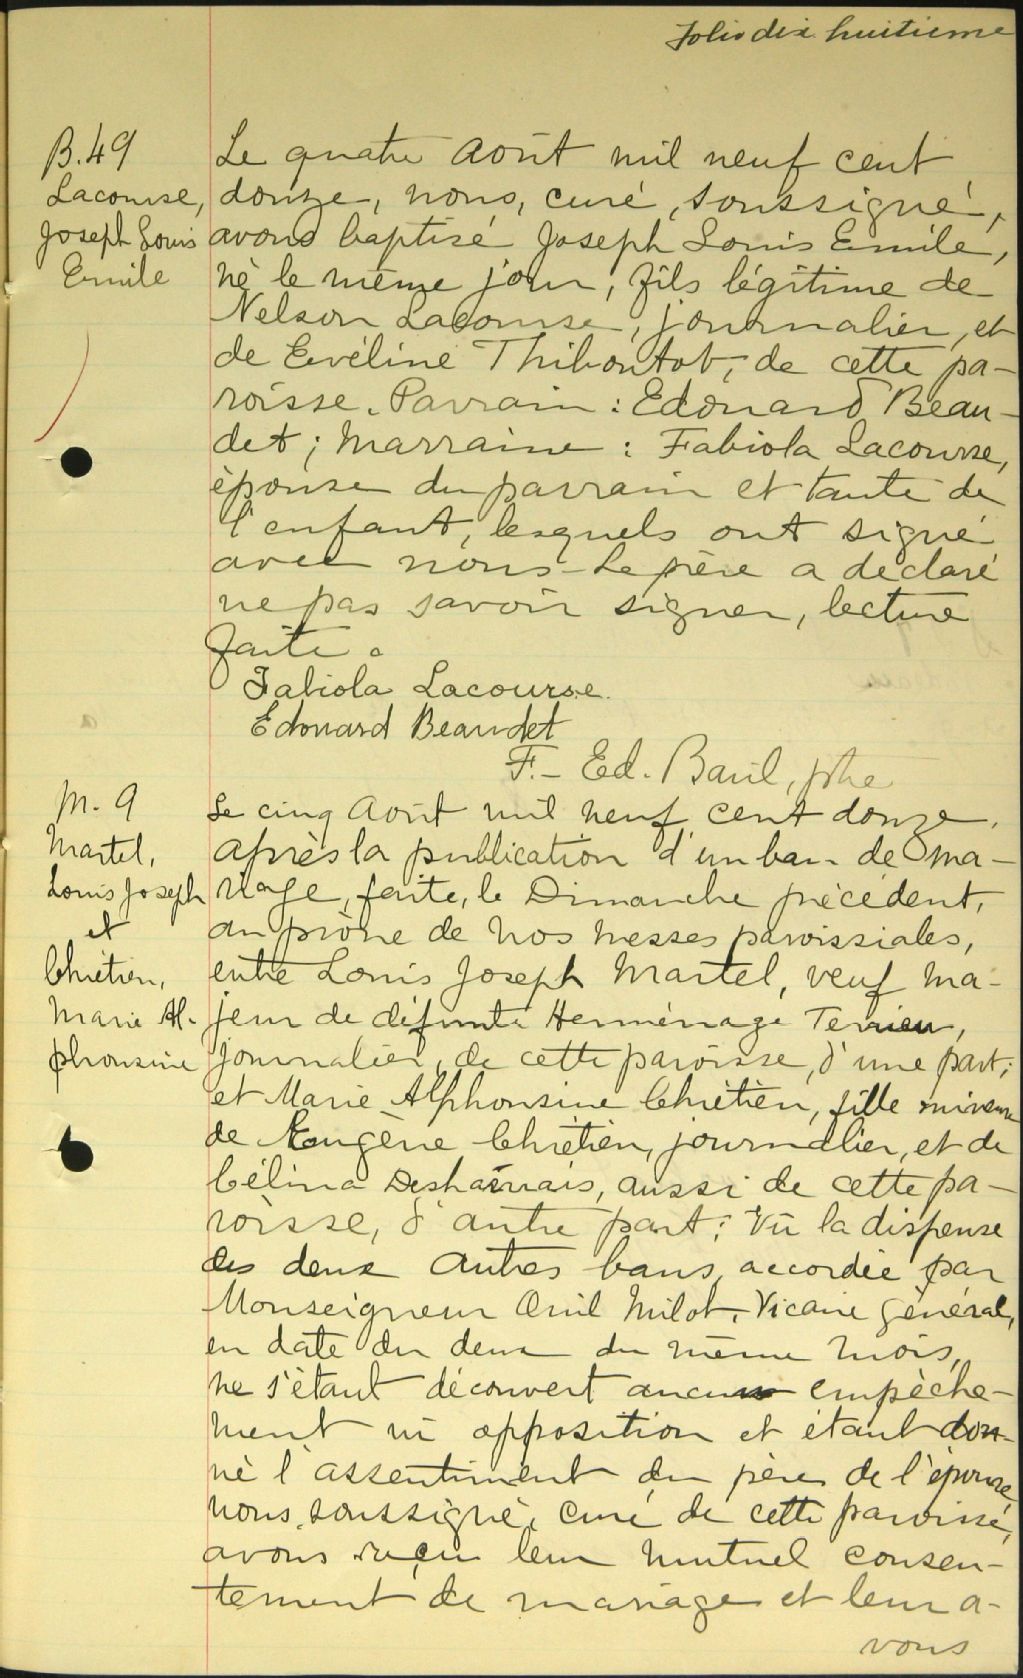 Folio dix huitieme
B. 49
Lacourse,
Joseph Louis
Emile
Le quatre Août mil neuf cent
douze, nous, curé, soussigné,
avons baptisé Joseph Louis Emile,
né le même jour, fils légitime de
Nelson Lacourse, journalier, et
de Evéline Thiboutot, de cette pa-
roisse. Parrain : Edouard Beau-
det ; Marraine : Fabiola Lacourse,
épouse du parrain et tante de
l'enfant, lesquels ont signé
avec nous - Le père a declaré
ne pas savoir signer, lecture
faite.
Fabiola Lacourse.
Edouard Beaudet
F.- Ed. Baril, ptre
M. 9
Martel,
Louis Joseph
et
Chrétien,
Marie Al-
phonsine
Le cinq Août mil neuf cent douze,
après la publication d'un ban de ma-
riage, faite, le Dimanche précédent,
au prône de nos messes paroissiales,
entre Louis Joseph Martel, veuf ma-
jeur de défunte Herménage Terrien,
journalier, de cette paroisse, d'une part;
et Marie Alphonsine Chrétien, fille mineure
de Eugène Chrétien, journalier, et de
Célina Desharnais, aussi de cette pa-
roisse, d'autre part : Vû la dispense
des deux autres bans, accordée par
Monseigneur Onil Milot, Vicaire Général,
en date du deux du même mois,
ne s'étant découvert aucun empêche-
ment ni opposition et étant don-
né l'assentiment du père de l'épouse,
nous, soussigné, curé de cette paroisse,
avons reçu leur mutuel consen-
tement de mariage et leur a-
vons